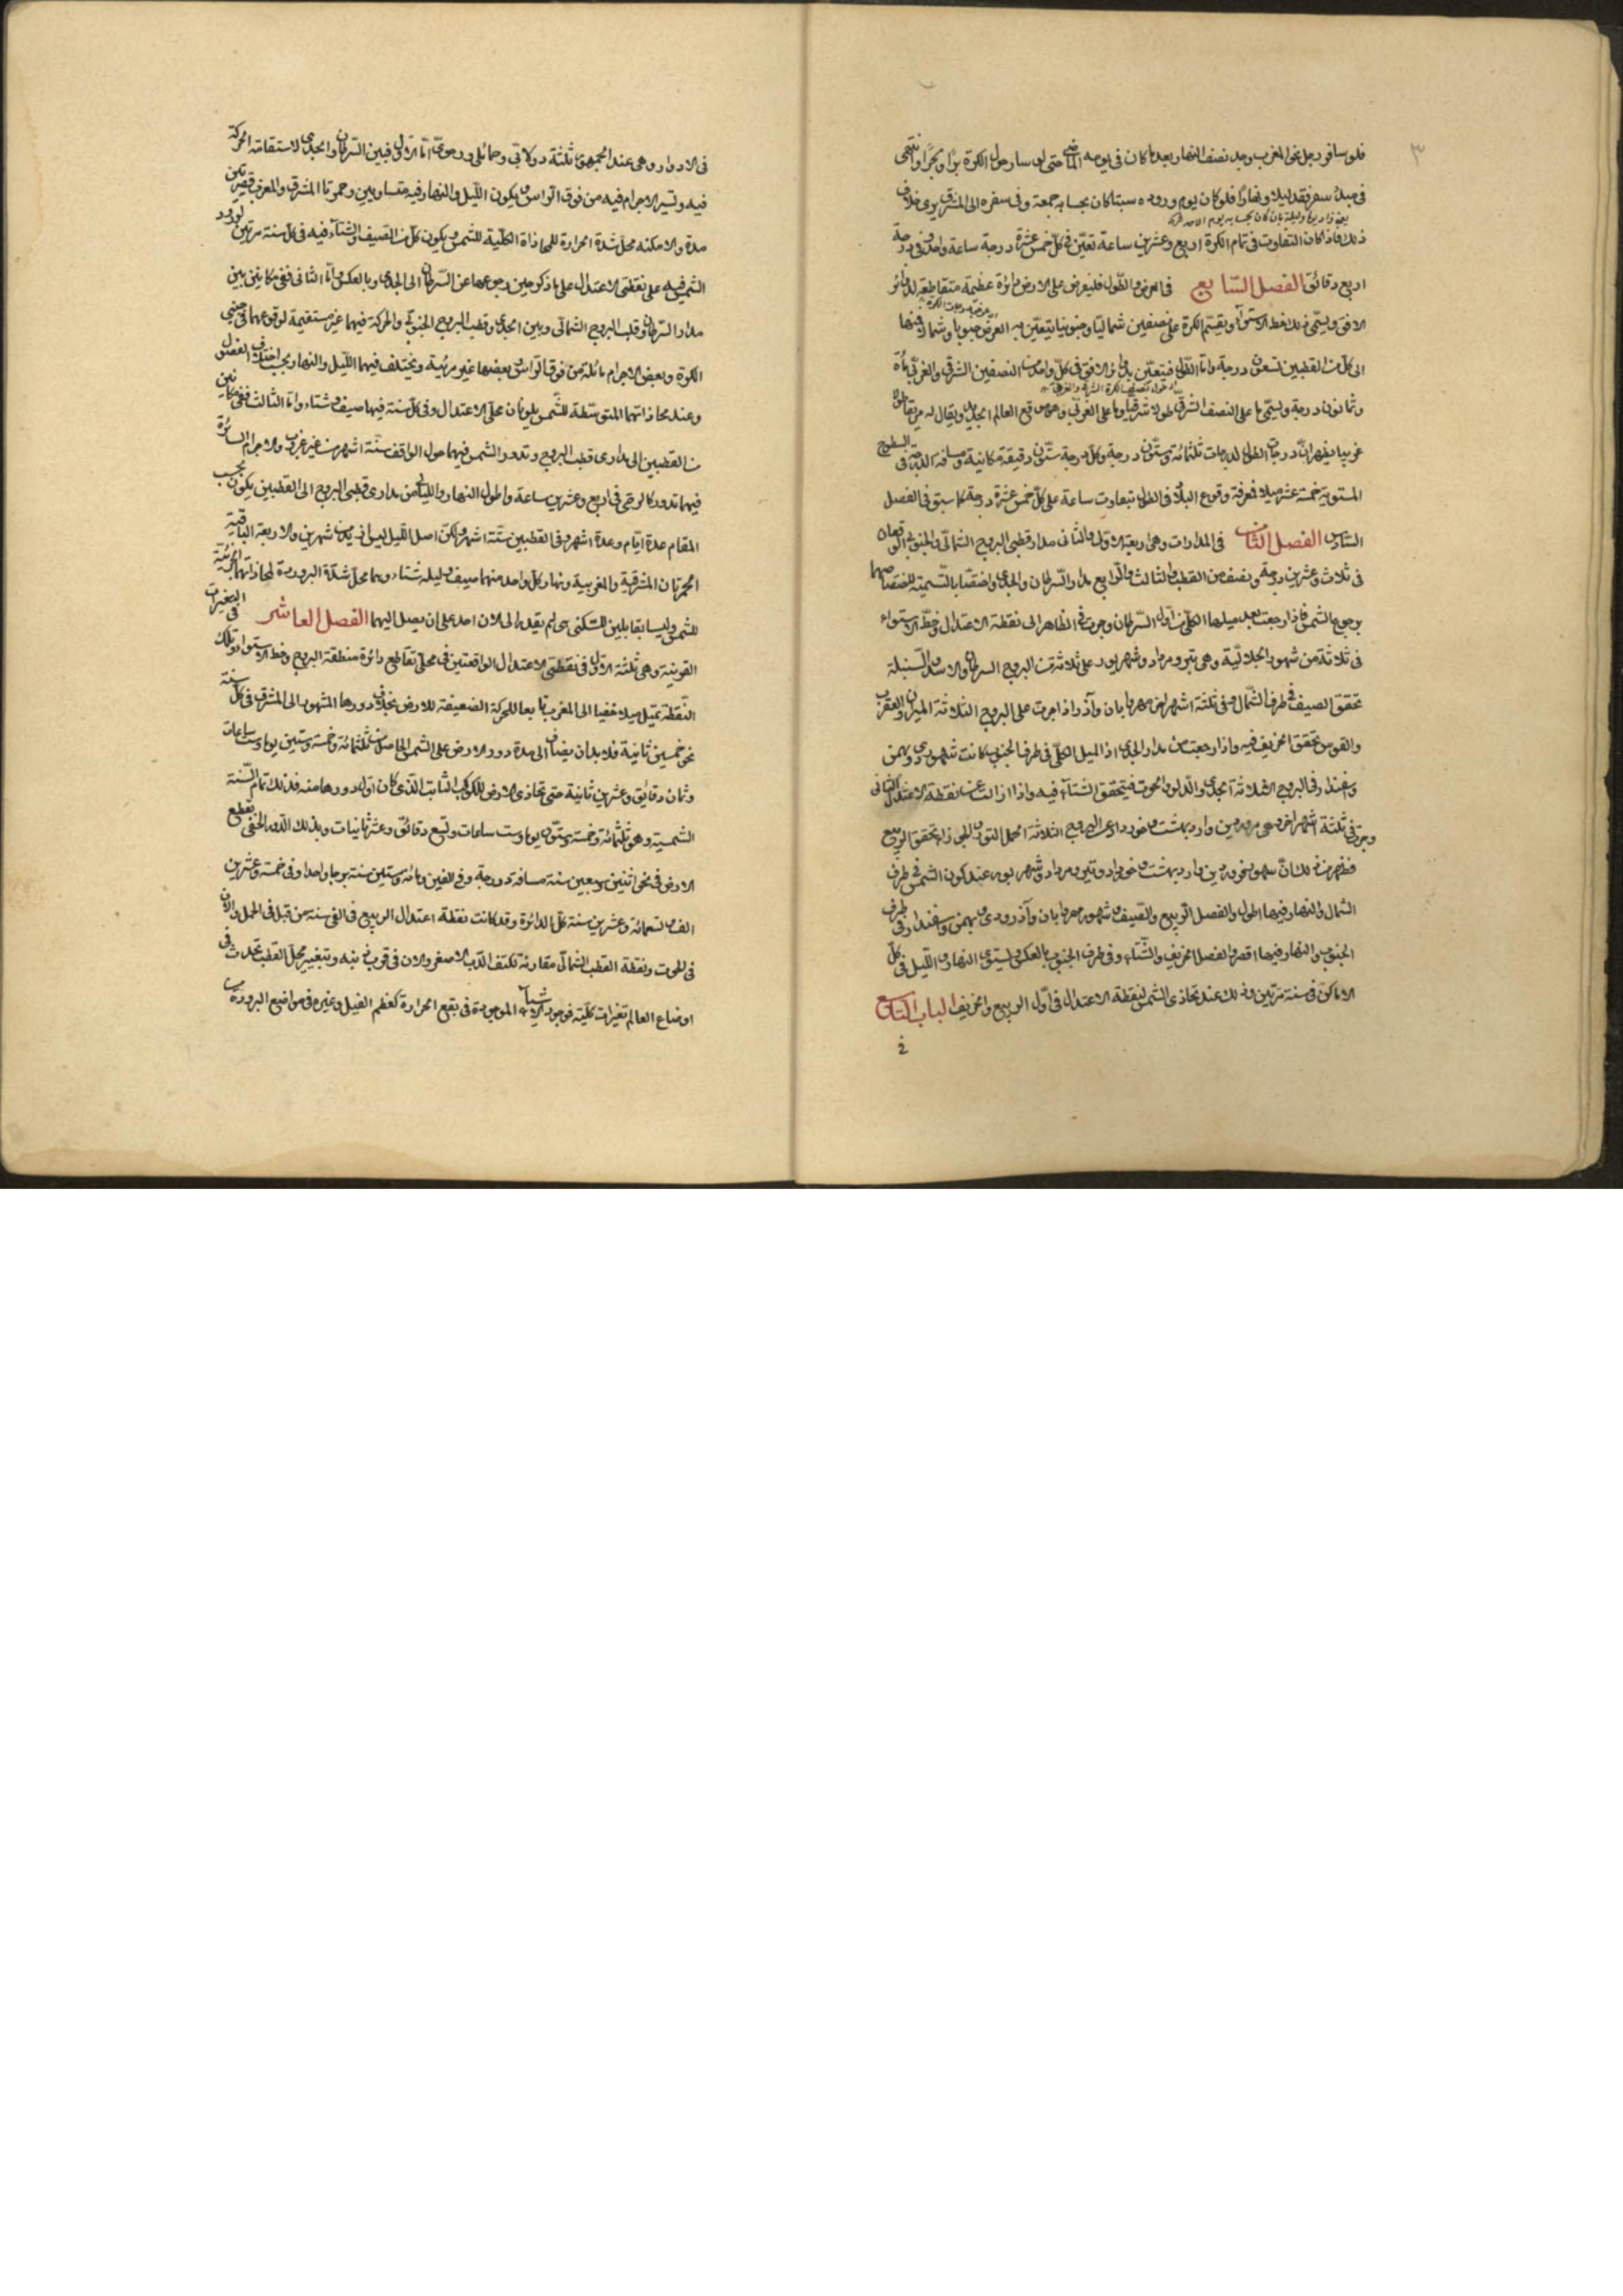 ٣
فلو سافر رجل نحو المغرب وجد نصف النهار بعد ما كان في يومه الماضي حتى لو سار حول الكرة برّا وبحرًا وانتهى
في مبدأ سفره فقد ليلا ونهارًا فلو كان يوم وروده سبتا كان بحسابه جمعة وفي سفره الى المشرق يرى خلاف
ذلك فاذا كان التفاوت في تمام الكرة اربع وعشرين ساعة تعيّن في كلّ خمس عشرة درجة ساعة واحدة وفي درجة
اربع دقائق الفصل السّابع في العرض والطّول فليفرض على الارض دائرة عظيمة متقاطعة لدوائر
الافق ويسمّى ذلك خط الاستواء ويقسم الكرة على نصفين شماليّا وجنوبيّا يتعيّن به العرض جنوبا وشمالا منها
الى كلّ من القطبين تسعون درجة وامّا الطّول فيتعيّن بدائرة الافق في كلّ واحد من النصفين الشرقي والغربيّ مأة
وثمانون درجة ويسمّى ما على النصف الشرقيّ طولا شرقيا وما على الغربيّ وهو موقع العالم الجديد ويقال له امريقا طولا
غربيا فيظهر انّ درجات الطول ثلثمائة وستّون درجة وكلّ درجة ستّون دقيقة مكانية ومسافة الدرجة في السطوح
المستوية خمسة عشر ميلا فمعرفة وقوع البلاد في الطول بتفاوت ساعة على كلّ خمس عشرة درجة كما سبق في الفصل
السّادس الفصل الثّامن في المدارات وهي اربعة الاوّل والثاني مدار قطبي البروج الشمالّي والجنوبي الواقعان
في ثلاث وعشرين درجة ونصف من القطب والثالث والرابع مدار السّرطان والجدي واختصّا بالتّسمية لاختصاصهما
برجوع الشمس فاذا رجعت بعد ميلها الكلّي من اوّل السّرطان وجرت في الظاهر الى نقطة الاعتدال وخطّ الاستواء
في ثلاثة من شهور الجلالّية وهي تير ومرداد وشهريور على ثلاثة من البروج السرطان والاسد والسّنبلة
تحقق الصيف في طرف الشّمال وفي ثلثة اشهر اخر مهر وابان وآذر اذا جرت على البروج الثلاثة الميزان والعقرب
والقوس تحقق الخريف فيه واذا رجعت من مدار الجدي اذ الميل الكلّي في طرف الجنوبي كانت شهور دي وبهمن
وسفندار في البروج الثلاثة الجدي والدّلو والحوت فيتحقق الشتاء فيه واذا زالت عن نقطة الاعتدال الثاني
وجرت في ثلثة اشهر اخر هي فروردين وارديبهشت وخرداد على البروج الثلاثة الحمل الثور والجوزا تحقق الربيع
فظهر من ذلك انّ شهور فروردين وارديبهشت وخرداد وتير ومرداد وشهريور عند كون الشمس في طرف
الشمال والنهار فيها اطول والفصل الرّبيع والصّيف وشهور مهر وابان وآذر ودي وبهمن وسفندار في طرف
الجنوب والنهار فيها اقصر والفصل الخريف والشّتاء وفي طرف الجنوب بالعكس ويستوي النهار والليل في كلّ
الاماكن في سنة مرّتين وذلك عند تحاذي الشمس لنقطة الاعتدال في اوّل الربيع والخريف الباب التّاسع
في
في الادوار وهي عند الجمهور ثلثة دولابي وحمائلي ورحويّ امّا الاوّل فبين السّرطان والجدي لاستقامة الحركة
فيه وتسير الاجرام فيه من فوق الرّاس ويكون اللّيل والنهار فيه متساويين وحمرتا المشرق والمغرب قصيرتين
مدة والامكنه محلّ شدة الحرارة للمحاذاة الكلّية للشمس ويكون كلّ من الصيف والشتاء فيه في كلّ سنة مرّتين لورود
الشمس فيه على نقطتي الاعتدال على ما ذكر حين رجوعها عن السّرطان الى الجدي وبالعكس وامّا الثاني ففي مكانين بين
مدار السّرطان وقطب البروج الشمالّي وبين الجدي وقطب البروج الجنوبي والحركة فيهما غير مستقيمة لوقوعهما في جنبي
الكرة وبعض الاجرام مائلة من فوق الرّاس وبعضها غير مرئية ويختلف فيهما اللّيل والنهار وبحسب اختلاف الفصول
وعند محاذاتهما المتوسّطة للشّمس يلونان محلّي الاعتدال وفي كلّ سنة فيهما صيف وشتاء وامّا الثالث ففي مكانين
من القطبين الى مداري قطب البروج وتدور الشمس فيهما حول الواقف ستّة اشهر من غير غروب والاجرام السائرة
فيهما تدور كالرحي في اربع وعشرين ساعة واطول النهار والليالي من مداري قطبي البروج الى القطبين يكون بحسب
المقام عدة ايّام وعدة اشهر وفي القطبين ستّة اشهر ولكنّ اصل اللّيل ليس ازيد من شهرين والاربعة الباقية
الحمرتان المشرقية والمغربية ونهار كلّ واحد منهما صيف وليله شتاء وهما محلّ شدّة البرودة لمحاذاتهما الجزئيّة
للشمس وليسا بقابلين للسّكنى بل لم يقدر الى الان احد على ان يصل اليهما الفصل العاشر في التغيرات
القرونية وهي ثلثة الاوّل في نقطتي الاعتدال الواقعتين في محلّي تقاطع دائرة منطقة البروج وخط الاستواء وتلك
النّقطة تميل ميلا خفيا الى المغرب تابعا للحركة الضعيفة للارض بخلاف دورها المشهور الى المشرق في كلّ سنة
نحو خمسين ثانية فلا بد ان يضاف الى مدة دور الارض على الشمس الحاصل من ثلثمائة وخمسة وستين يوما وست ساعات
وثمان دقايق وعشرين ثانية حتى تحاذي الارض للكوكب الثابت الّذي كان اوّل دورها منه فذلك تمام السّنة
الشمسية وهو ثلثمائة وخمسة وستّون يوما وست ساعات وتسع دقائق وعشر ثانيات وبذلك الدّور الخفي تقطع
الارض في نحو اثنين وسبعين سنة مسافة درجة وفي الفين ومائة وستين سنة برجا واحدا وفي خمسة وعشرين
الف وتسعمائة وعشرين سنة كلّ الدائرة وقد كانت نقطة اعتدال الربيع في الفي سنة من قبل في الحمل والان
في الحوت ونقطة القطب الشمالّي مقارنة لكتف الدّب الاصغر والان في قرب ذنبه وبتغيير محلّ القطب تحدث في
اوضاع العالم تغيرات كلّية فوجود الاشياء الموجودة في بقع الحرارة كعظم الفيل وغيره في مواضع البرودة